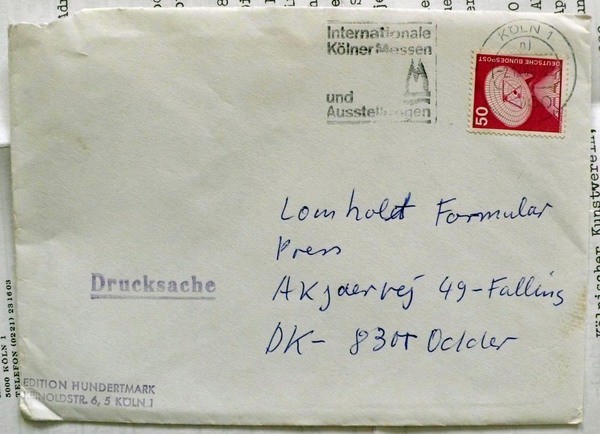 Internationale
Kölner Messen
und
Ausstellungen
KÖLN 1
DEUTSCHE BUNDESPOST
50
Lomholdt Formular
Press
Akjaervej 49-Falling
DK- 8300 Odder
Drucksache
EDITION HUNDERTMARK
NOLDSTR. 6, 5 KÖLN 1
5000 KÖLN 1
TELEFON (0221) 231603
Kölnischer Kunstverein,